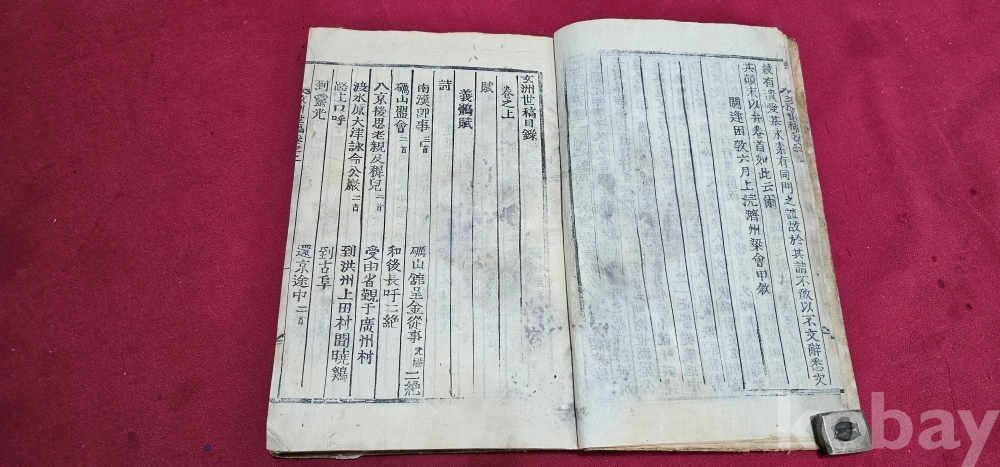 綾有遺愛基永素有同門之誼故於其請不敢以不文辭悉次
其顚末以弁卷首如此云爾
閼逢困敦六月上浣濟州梁會甲敘
玄洲世稿目錄
卷之上
賦
義鶻賦
詩
南漢卽事 三首
礪山館呈金從事 二絶
礪山盟會 二首
和後長呼二絶
入京後思老親及穉兒 二首
受由省覲于廣州村
渡水原大津詠令公巖 二首
到洪州上田村聞曉鷄
路上口呼
到古阜
到靈光
還京途中 二首
kobay